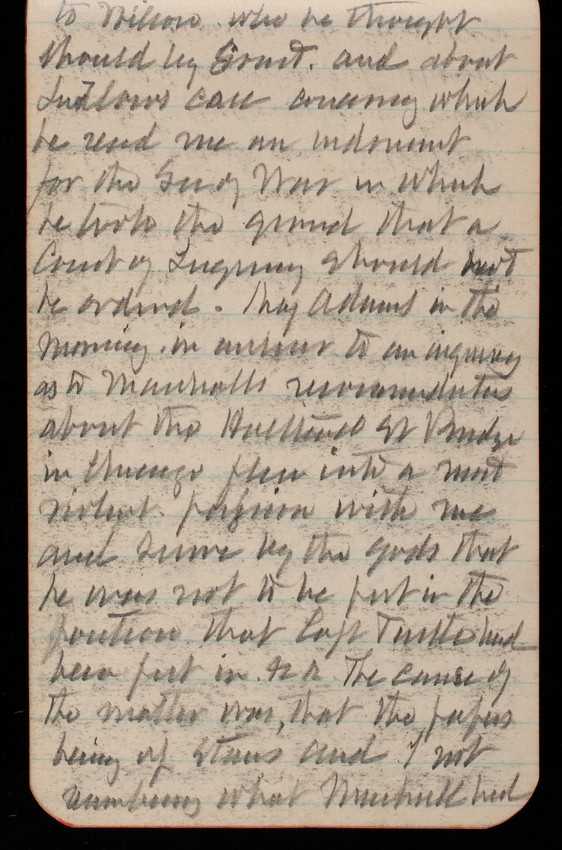 to Wilson who he thought
should by Grant. and about
Ludlows case concerning which
he read me an indorsement
for the Sec of War in which
he took the ground that a
Court of Inquiry should not
be ordered. Maj Adams in the
morning in answer to an inquiry
as to Marshalls recommendation
about the Halsted St Bridge
in Chicago flew into a most
violent passion with me
and swore by the gods that
he was not to be put in the
position that Capt Turtle had
been put in. The cause of
the matter was, that the papers
being of and I not
what Marshall had